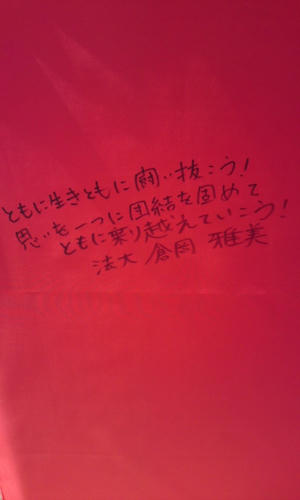 ともに生きともに闘い抜こう!
思いを一つに団結を固めて
ともに乗り越えていこう!
法大 倉岡 雅美